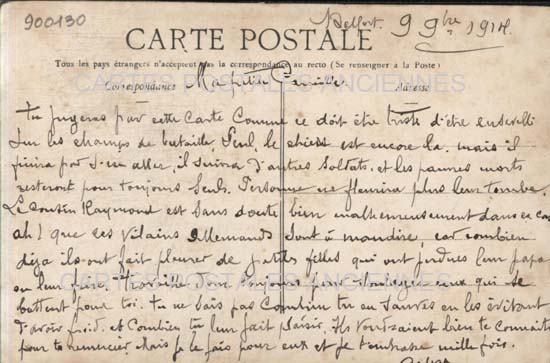 900130
Belfort. 9 9bre 1914.
CARTE POSTALE
Tous les pays étrangers n'acceptent pas la correspondance au recto (Se renseigner à la Poste)
Correspondance Ma petite Adresse
CARTES POSTALES ANCIENNES
Tu jugeras par cette Carte Comme ce doit être triste d'être enseveli
Sur les champs de bataille Seul, le chien est encore là, mais il
finira par s'en aller, il suivra d'autres soldats, et les pauvres morts
resteront pour toujours Seuls. Personne ne fleurira plus leur tombe.
Le cousin Raymond est Sans doute bien malheureusement dans ce cas
ah! que ces vilains allemands Sont à maudire, car combien
déjà ils ont fait pleurer de petites filles qui ont perdues leur papa
CARTES POSTALES ANCIENNES
ou leur frère. donc toujours pour ceux qui se
battent pour toi. Tu ne sais pas Combien tu en Sauves en les évitant
d'avoir froid, et Combien tu leur fait plaisir. Ils voudraient bien te connaître
pour te remercier Mais je le fais pour eux et je t'embrasse mille fois.